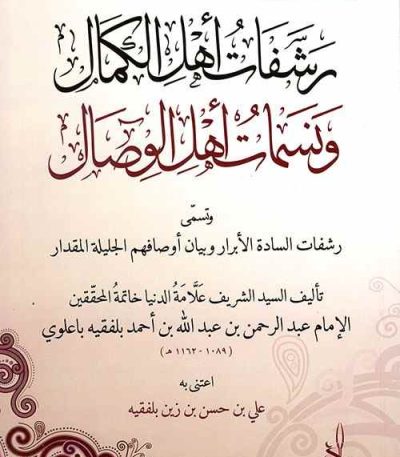 رَشَفَاتُ أَهْلِ الكَمَالِ
وَنَسَمَاتُ أَهْلِ الوِصَالِ
وتسمّى
رشفات السادة الأبرار وبيان أوصافهم الجليلة المقدار
تأليف السيد الشريف عَلَّامَةُ الدنيا خاتمةُ المحقّقين
الإمام عبد الرحمن بن عبد الله بن أحمد بلفقيه باعلوي
( ١٠٨٩ - ١١٦٢ هـ )
اعتنى به
علي بن حسن بن زين بلفقيه